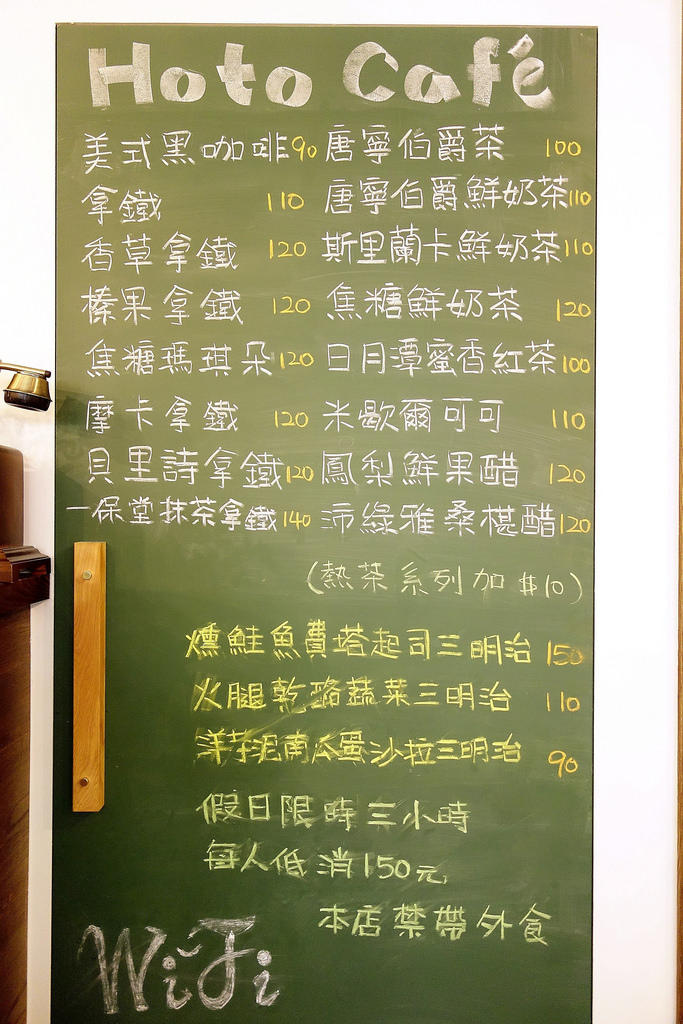 Hoto Café
美式黑咖啡 90 唐寧伯爵茶 100
拿鐵 110 唐寧伯爵鮮奶茶 110
香草拿鐵 120 斯里蘭卡鮮奶茶 110
榛果拿鐵 120 焦糖鮮奶茶 120
焦糖瑪琪朵 120 日月潭蜜香紅茶 100
摩卡拿鐵 120 米歇爾可可 110
貝里詩拿鐵 120 鳳梨鮮果醋 120
一保堂抹茶拿鐵 140 沛綠雅桑椹醋 120
(熱茶系列加$10)
燻鮭魚費塔起司三明治 150
火腿乾酪蔬菜三明治 110
洋芋泥南瓜蛋沙拉三明治 90
假日限時三小時
每人低消150元
本店禁帶外食
WiFi